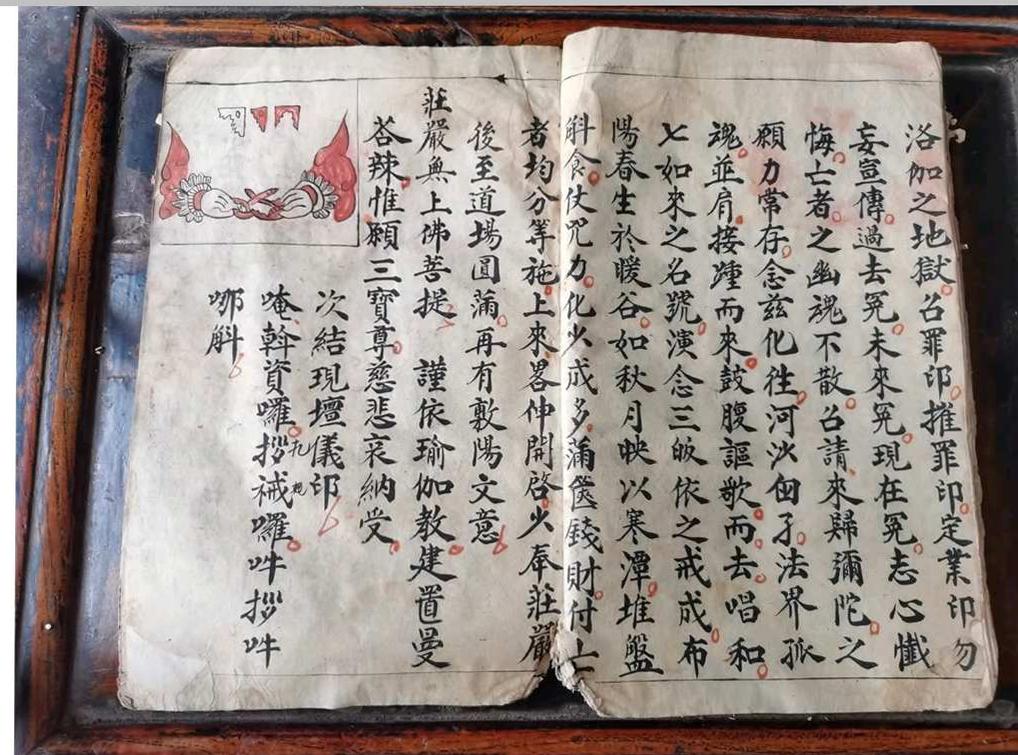 洛伽之地獄召罪印摧罪印定業印勿
妄豈傳過去冤未來冤現在冤志心懺
悔亡者之幽魂不散召請來歸彌陀之
願力常存念茲化往河沙甸子法界孤
魂並肩接踵而來鼓腹謳歌而去唱和
七如來之名號演念三皈依之戒成布
陽春生於暖谷如秋月映以寒潭堆盤
斛食仗咒力化少成多蒲筵錢財付亡
者均分等施上來畧伸開啓少奉莊嚴
後至道場圓蒲再有敷陽文意
莊嚴無上佛菩提 謹依瑜伽教建置曼
荅辣惟願三寶尊慈悲哀納受
次結現壇儀印
唵斡資囉拶祴囉吽拶吽
九
哪斛